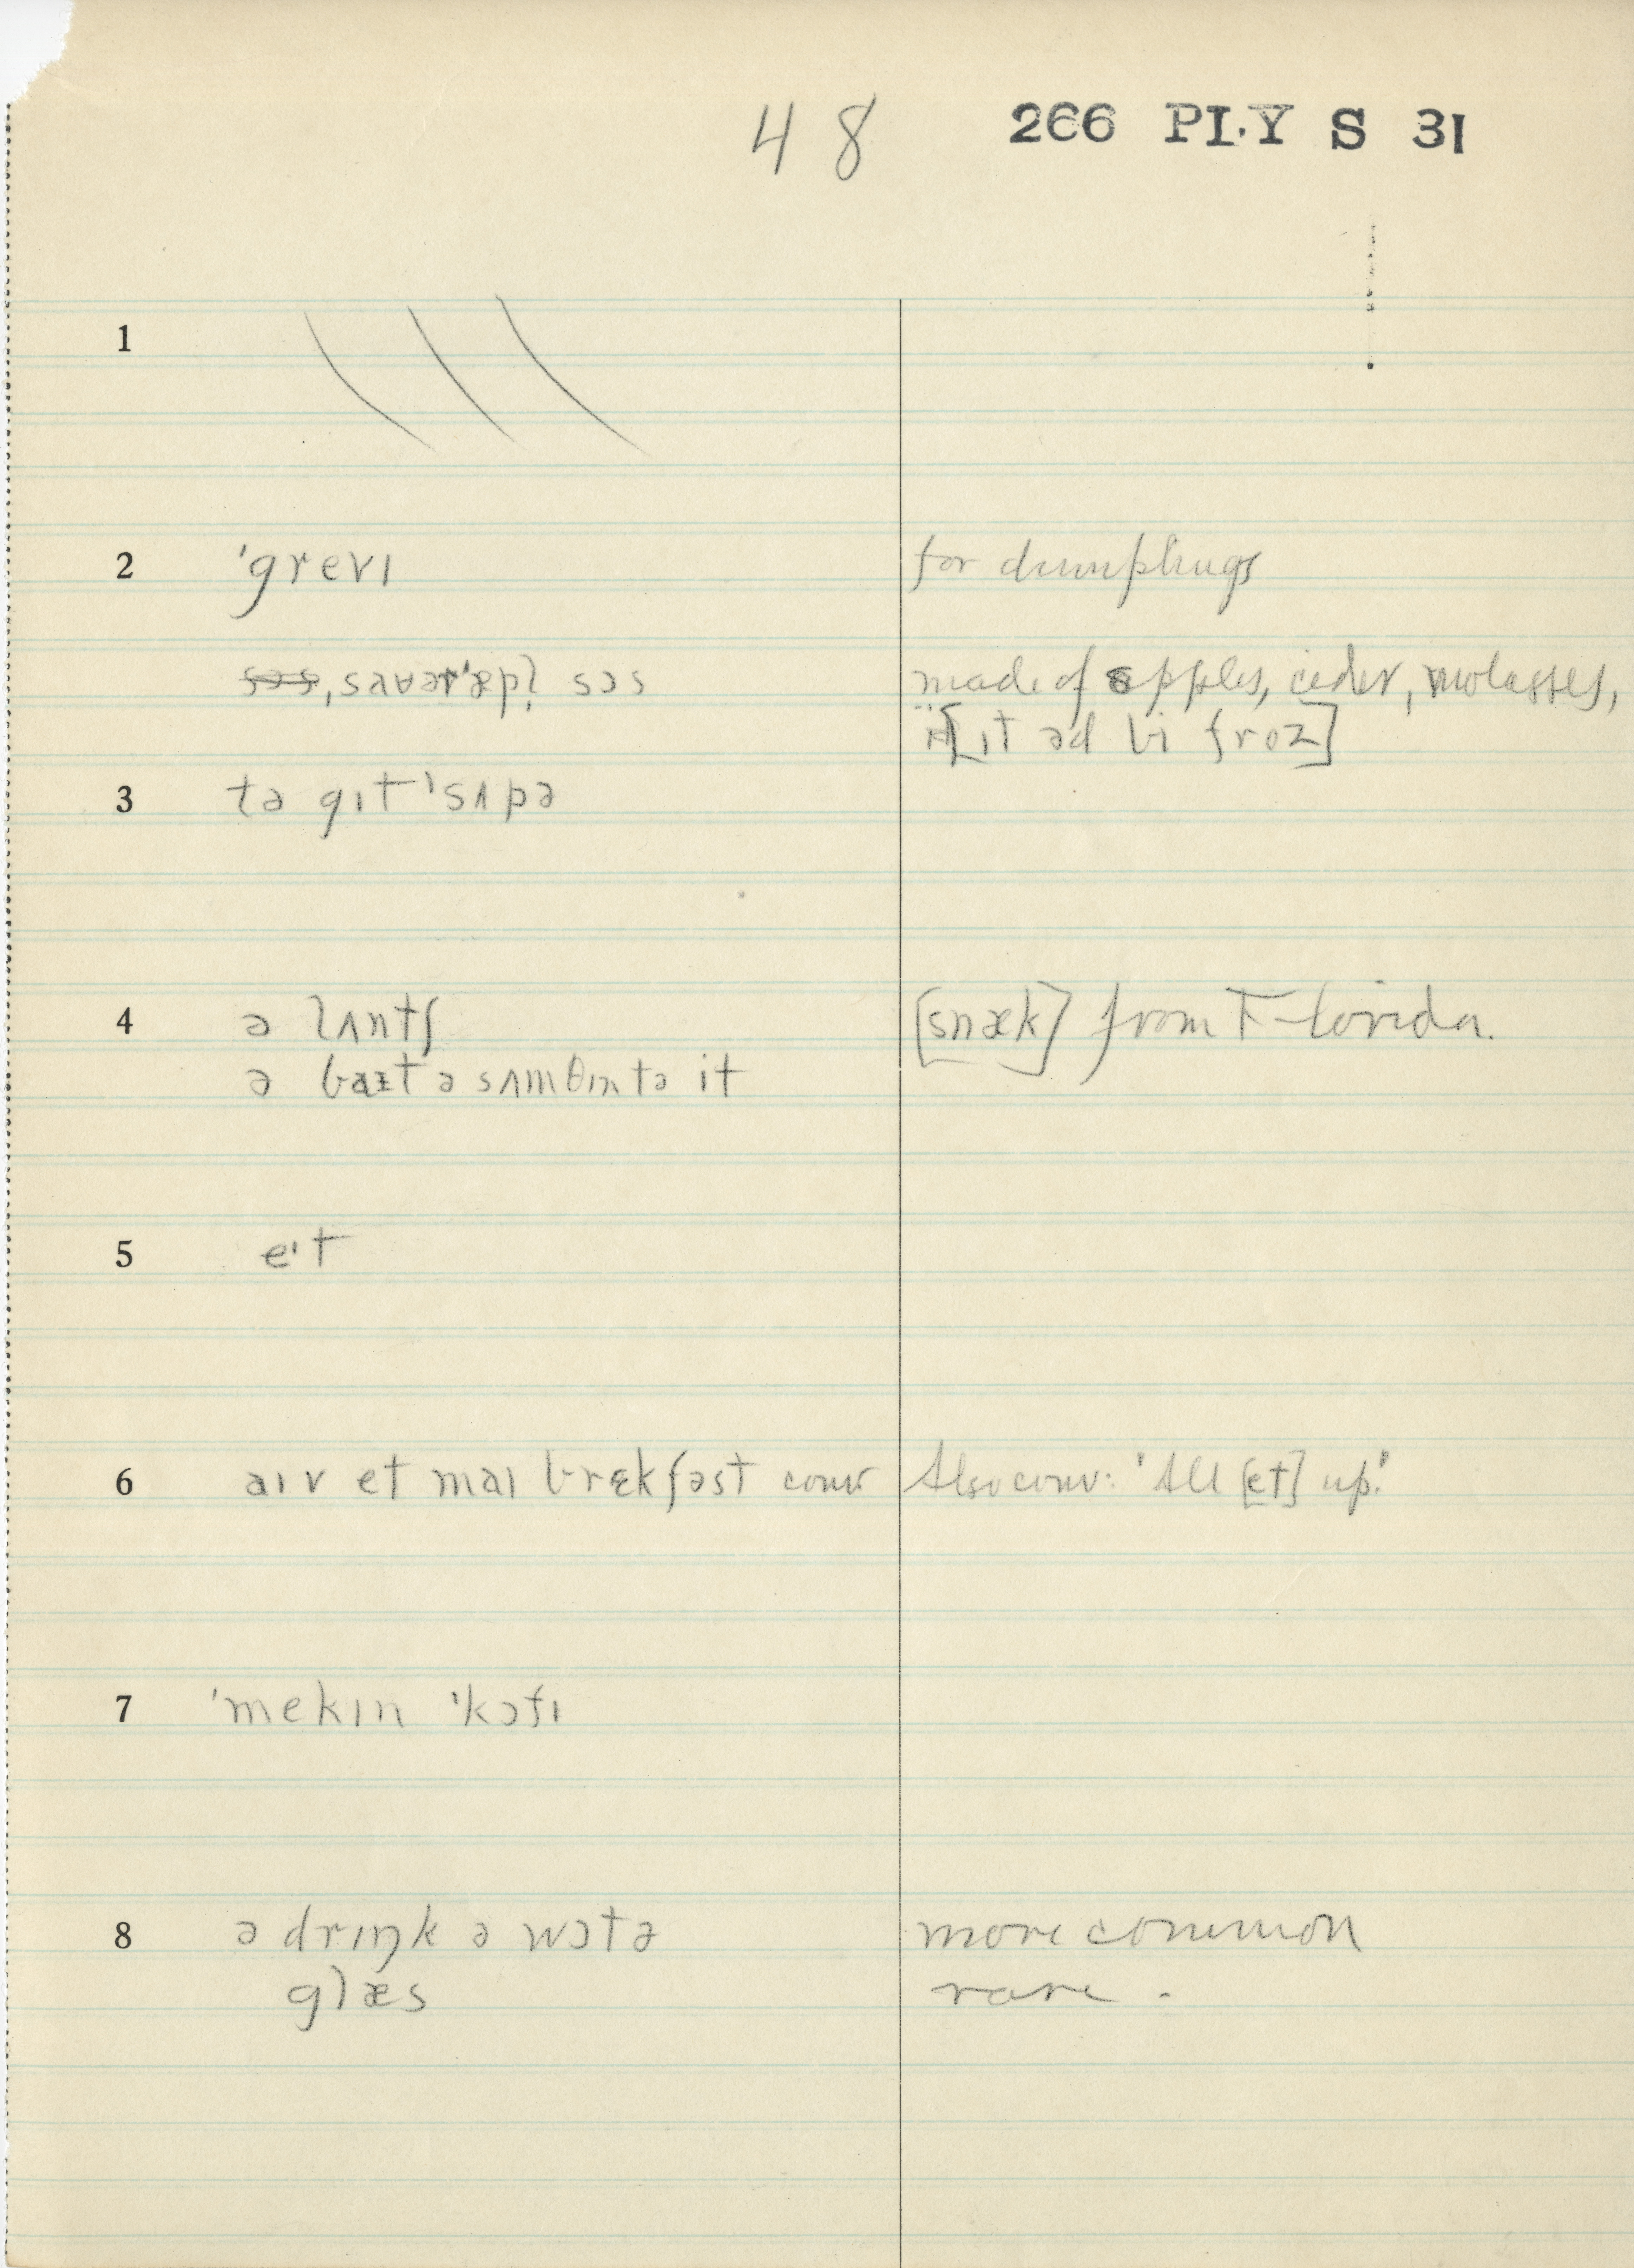 48 266 PLY S 31
1
2 ˈgrevɪ for dumplings
sɔs, made of apples, cider, molasses,
[ɪt əd bi froz]
3 tə gɪt ˈsʌpə
4 ə lʌntʃ [snæk] from Florida.
ə baɪt ə sʌmθɪn tə it
5 eˑt
6 aɪv et maɪ brɛkfəst conv Also conv: 'All [et] up.'
7 ˈmekɪn ˈkɔfɪ
8 ə drɪŋk ə wɔtə more common
glæs rare.